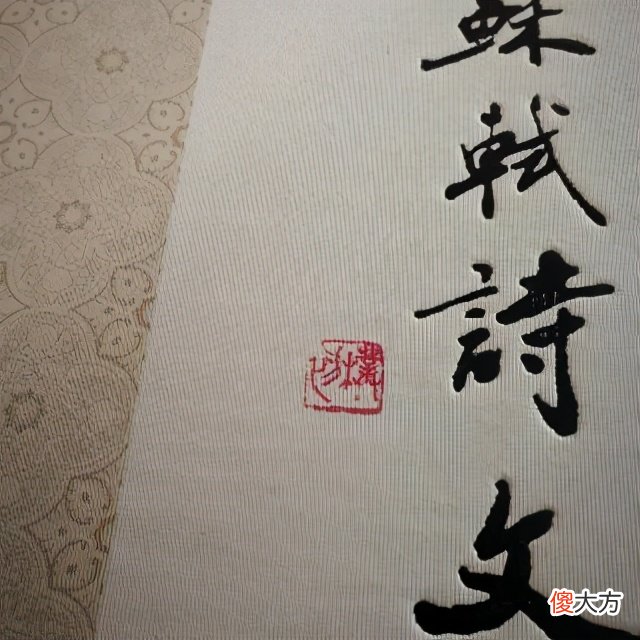 蘇軾詩文
傻大方